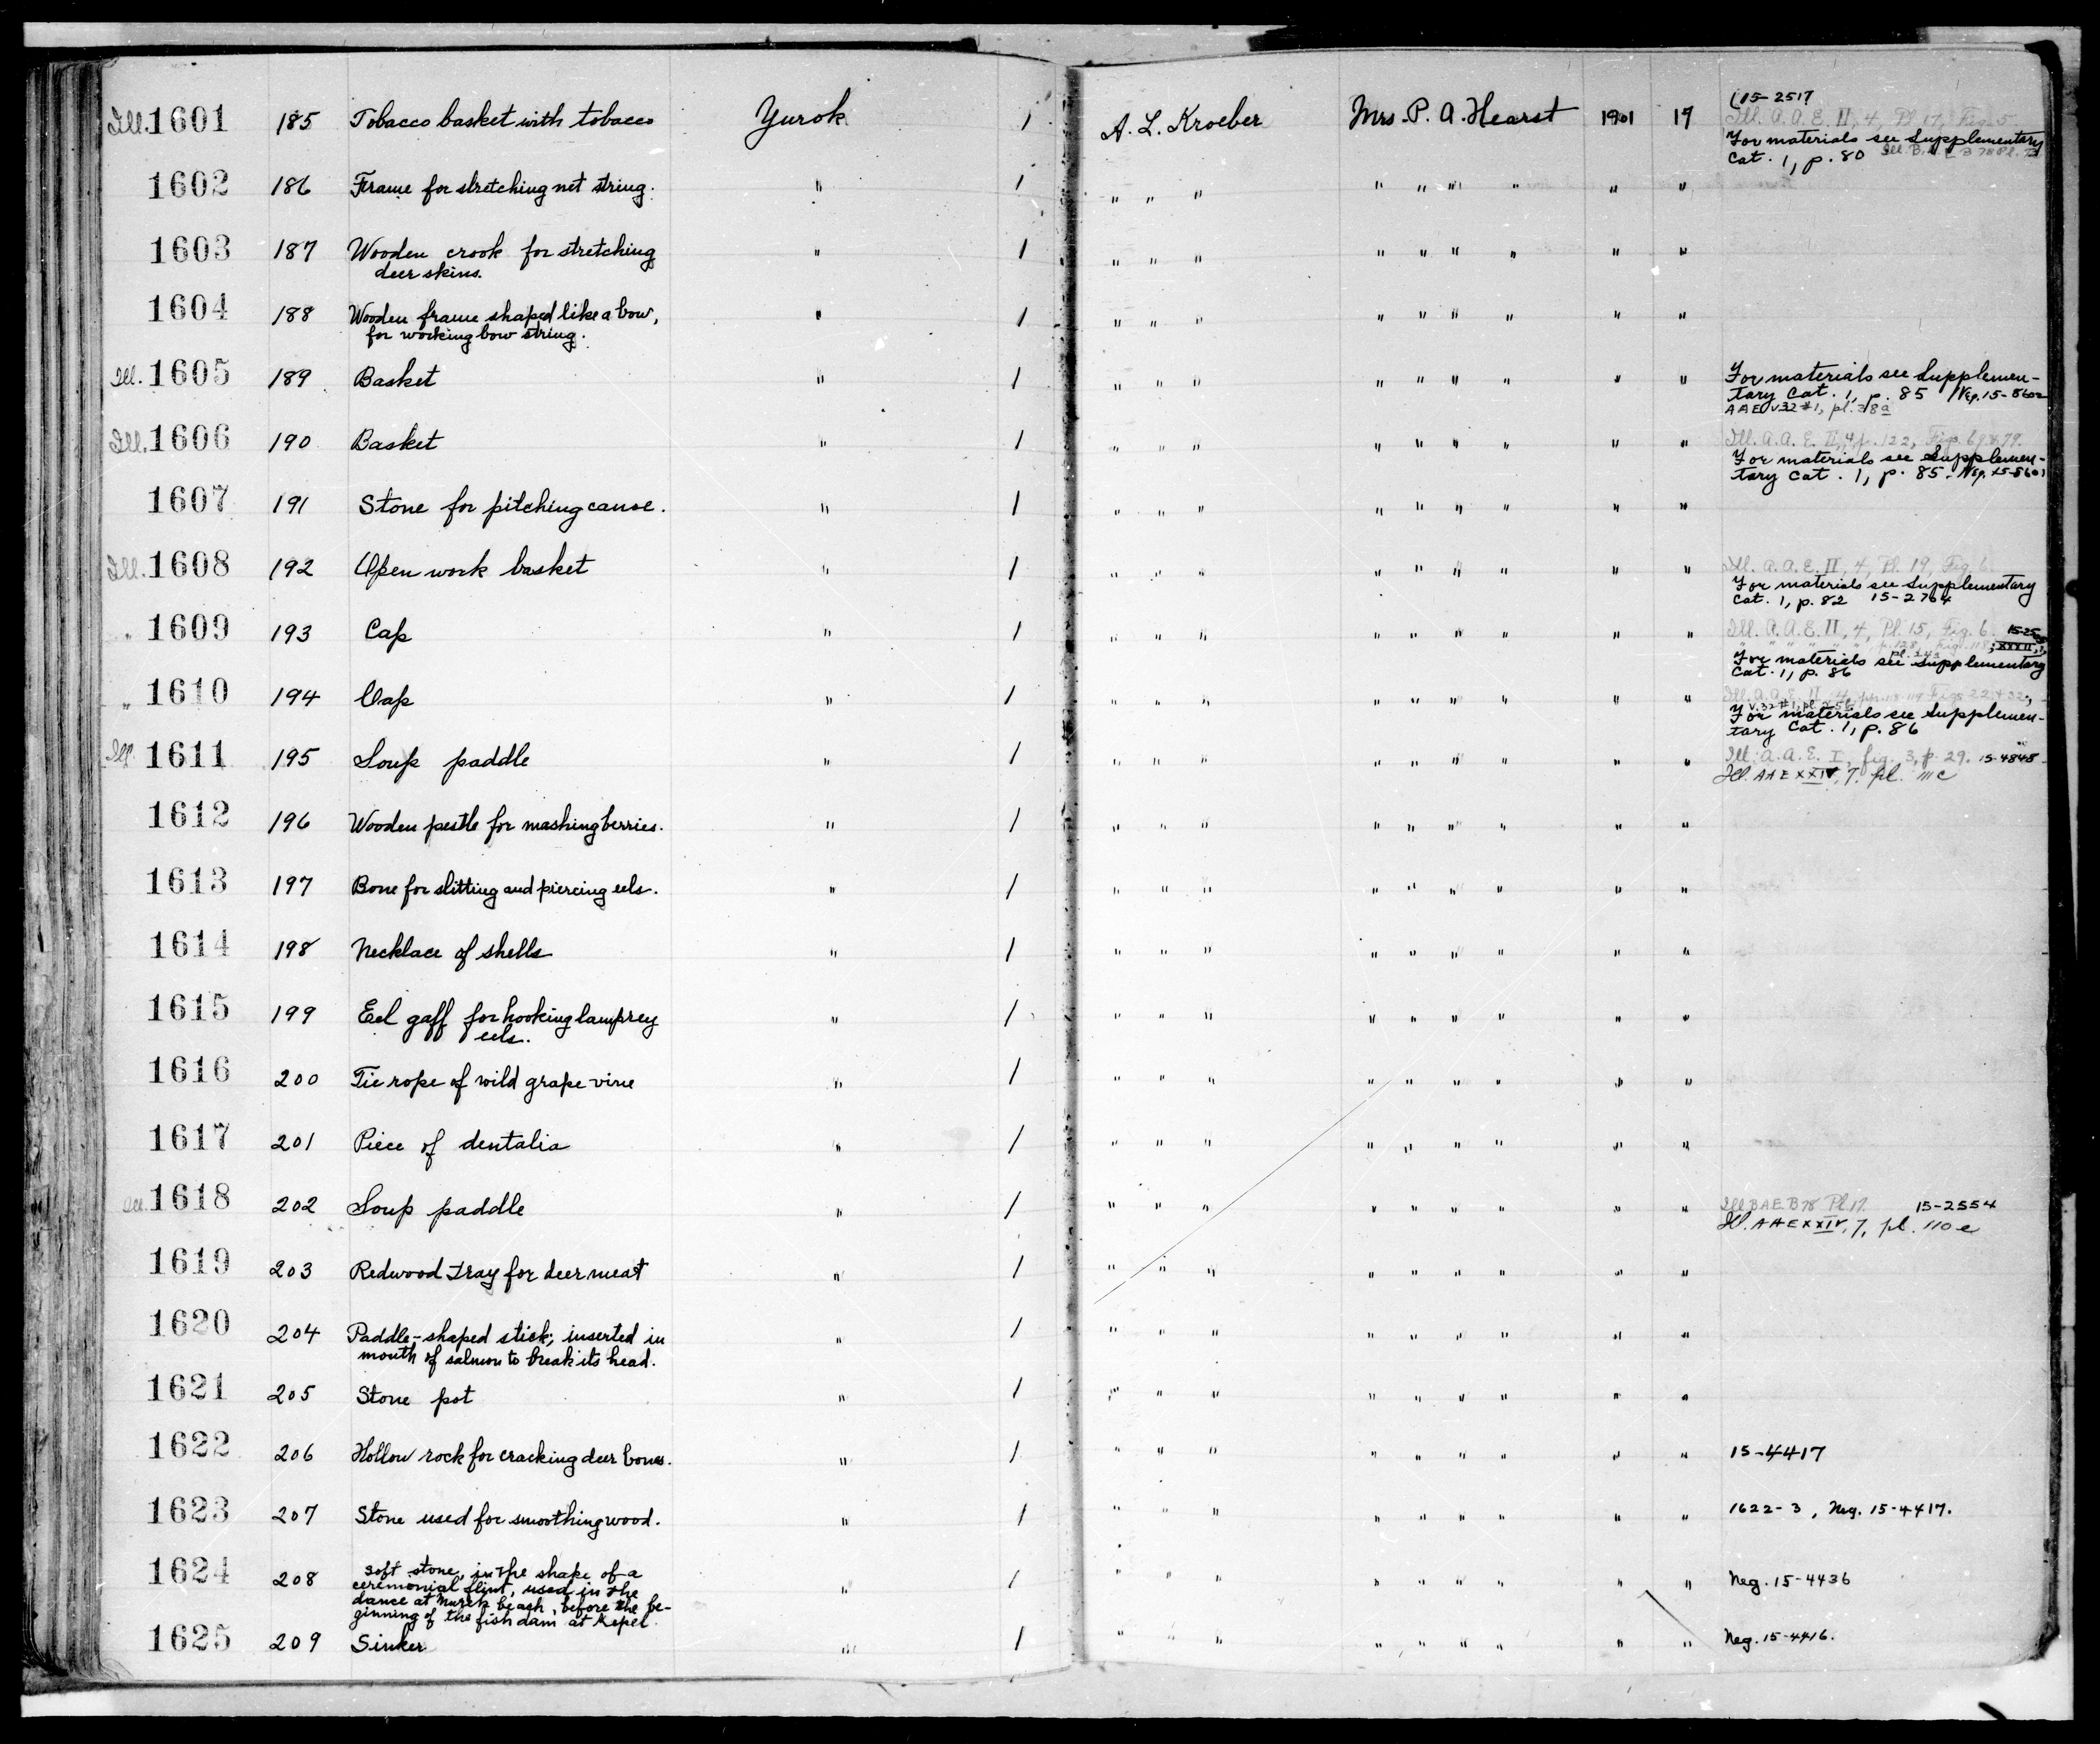 Ill. 1601 185 Tobacco basket with tobacco Yurok 1 A. L. Kroeber Mrs. P. A. Hearst 1901 17 15-2517
Ill. A.A.E. II, 4, Pl 17, Fig. 5
For materials see Supplementary
Cat. 1, p. 80
1602 186 Frame for stretching net string. " 1 " " " " " " " " "
1603 187 Wooden crook for stretching " 1 " " " " " " " " "
deer skins.
1604 188 Wooden frame shaped like a bow, " 1 " " " " " " " " "
for working bow string.
Ill. 1605 189 Basket " 1 " " " " " " " " " For materials see Supplemen-
tary Cat. 1, p. 85 Neg. 15-5602
AAE v.32 #1, pl. 38a
Ill. 1606 190 Basket " 1 " " " " " " " " " Ill. A.A.E. II, 4, p. 122, Figs. 69 & 79.
For materials see Supplemen-
tary Cat. 1, p. 85. Neg. 15-5601
1607 191 Stone for pitching canoe. " 1 " " " " " " " " "
Ill. 1608 192 Open work basket " 1 " " " " " " " " " Ill. A.A.E. II, 4, Pl. 19, Fig. 6.
For materials see Supplementary
Cat. 1, p. 82 15-2764
" 1609 193 Cap " 1 " " " " " " " " " Ill. A.A.E. II, 4, Pl. 15, Fig. 6.
For materials see Supplementary
Cat. 1, p. 86
" 1610 194 Cap " 1 " " " " " " " " " Ill. A.A.E. II, 4,
For materials see Supplemen-
tary Cat. 1, p. 86
Ill. 1611 195 Soup paddle " 1 " " " " " " " " " Ill. A.A.E. I, fig. 3, p. 29. 15-4848
Ill. AAE XXIV, 7, pl. 111c
1612 196 Wooden pestle for mashing berries. " 1 " " " " " " " " "
1613 197 Bone for slitting and piercing eels. " 1 " " " " " " " " "
1614 198 Necklace of shells " 1 " " " " " " " " "
1615 199 Eel gaff for hooking lamprey " 1 " " " " " " " " "
eels.
1616 200 Tie rope of wild grape vine " 1 " " " " " " " " "
1617 201 Piece of dentalia " 1 " " " " " " " " "
Ill. 1618 202 Soup paddle " 1 " " " " " " " " " Ill BAE B78 Pl. 17. 15-2554
Ill. AAE XXIV, 7, pl. 110e
1619 203 Redwood tray for deer meat " 1 " " " " " " " " "
1620 204 Paddle-shaped stick; inserted in " 1 " " " " " " " " "
mouth of salmon to break its head.
1621 205 Stone pot " 1 " " " " " " " " "
1622 206 Hollow rock for cracking deer bones. " 1 " " " " " " " " " 15-4417
1623 207 Stone used for smoothing wood. " 1 " " " " " " " " " 1622-3, Neg. 15-4417.
1624 208 Soft stone, in the shape of a " 1 " " " " " " " " " Neg. 15-4436
ceremonial flint, used in the
dance at Murek beach, before the be-
ginning of the fish dam at Kepel.
1625 209 Sinker " 1 " " " " " " " " " Neg. 15-4416.